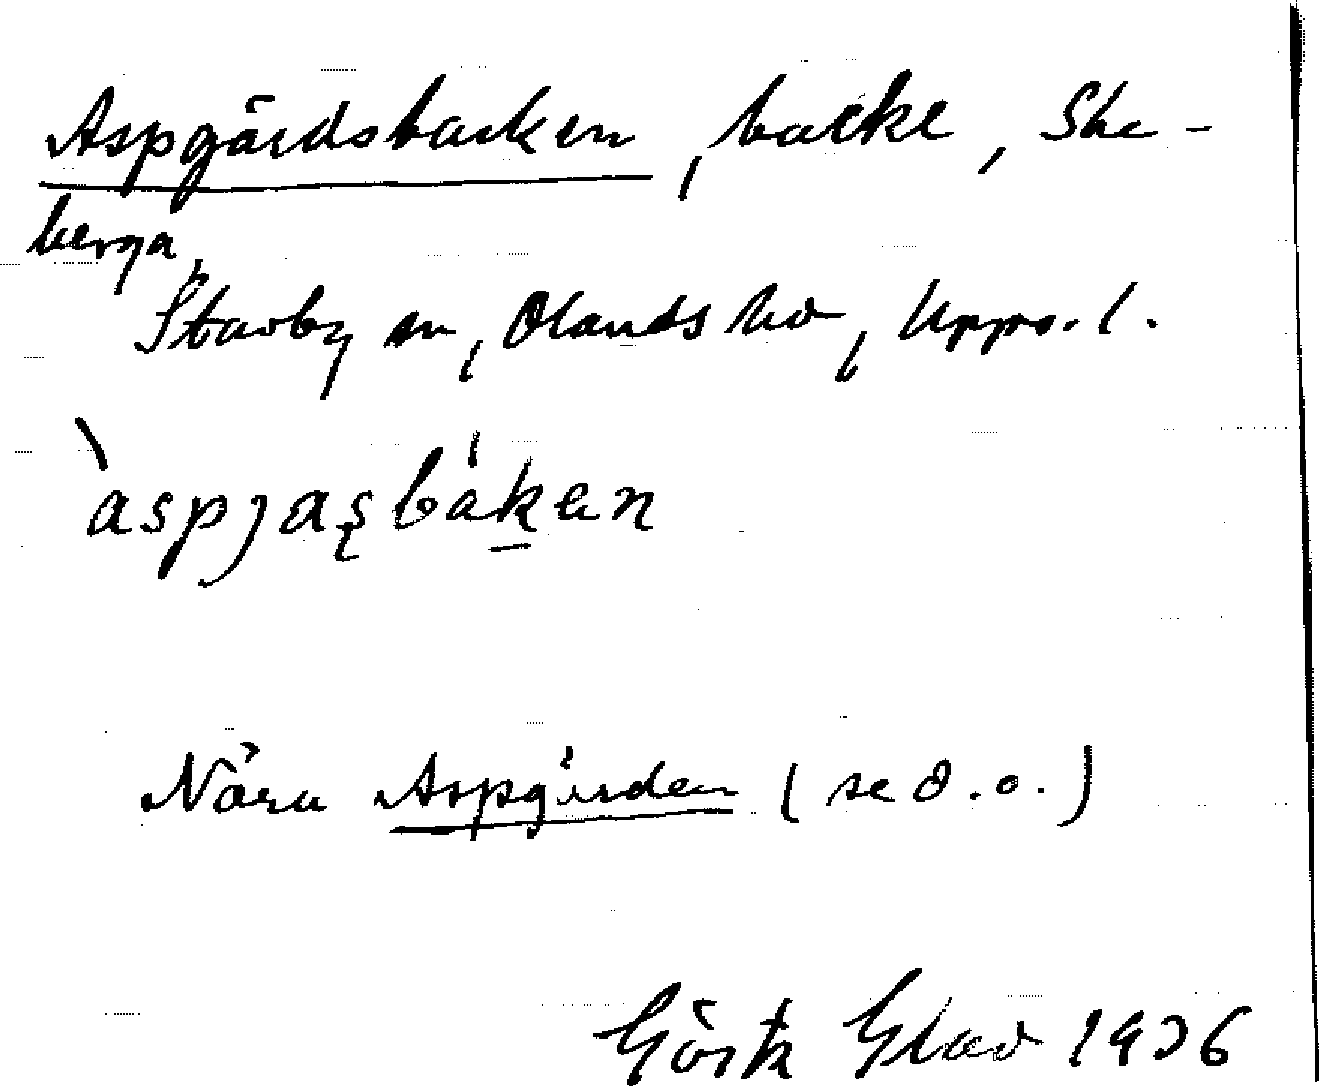 Aspgårdsbacken, backe, Ske-
berga,
Stavby sn, Olands hd, Upps. l.
àspjaşbákен
Nära Aspgården (se d.o.)
Gösta Glav 1936